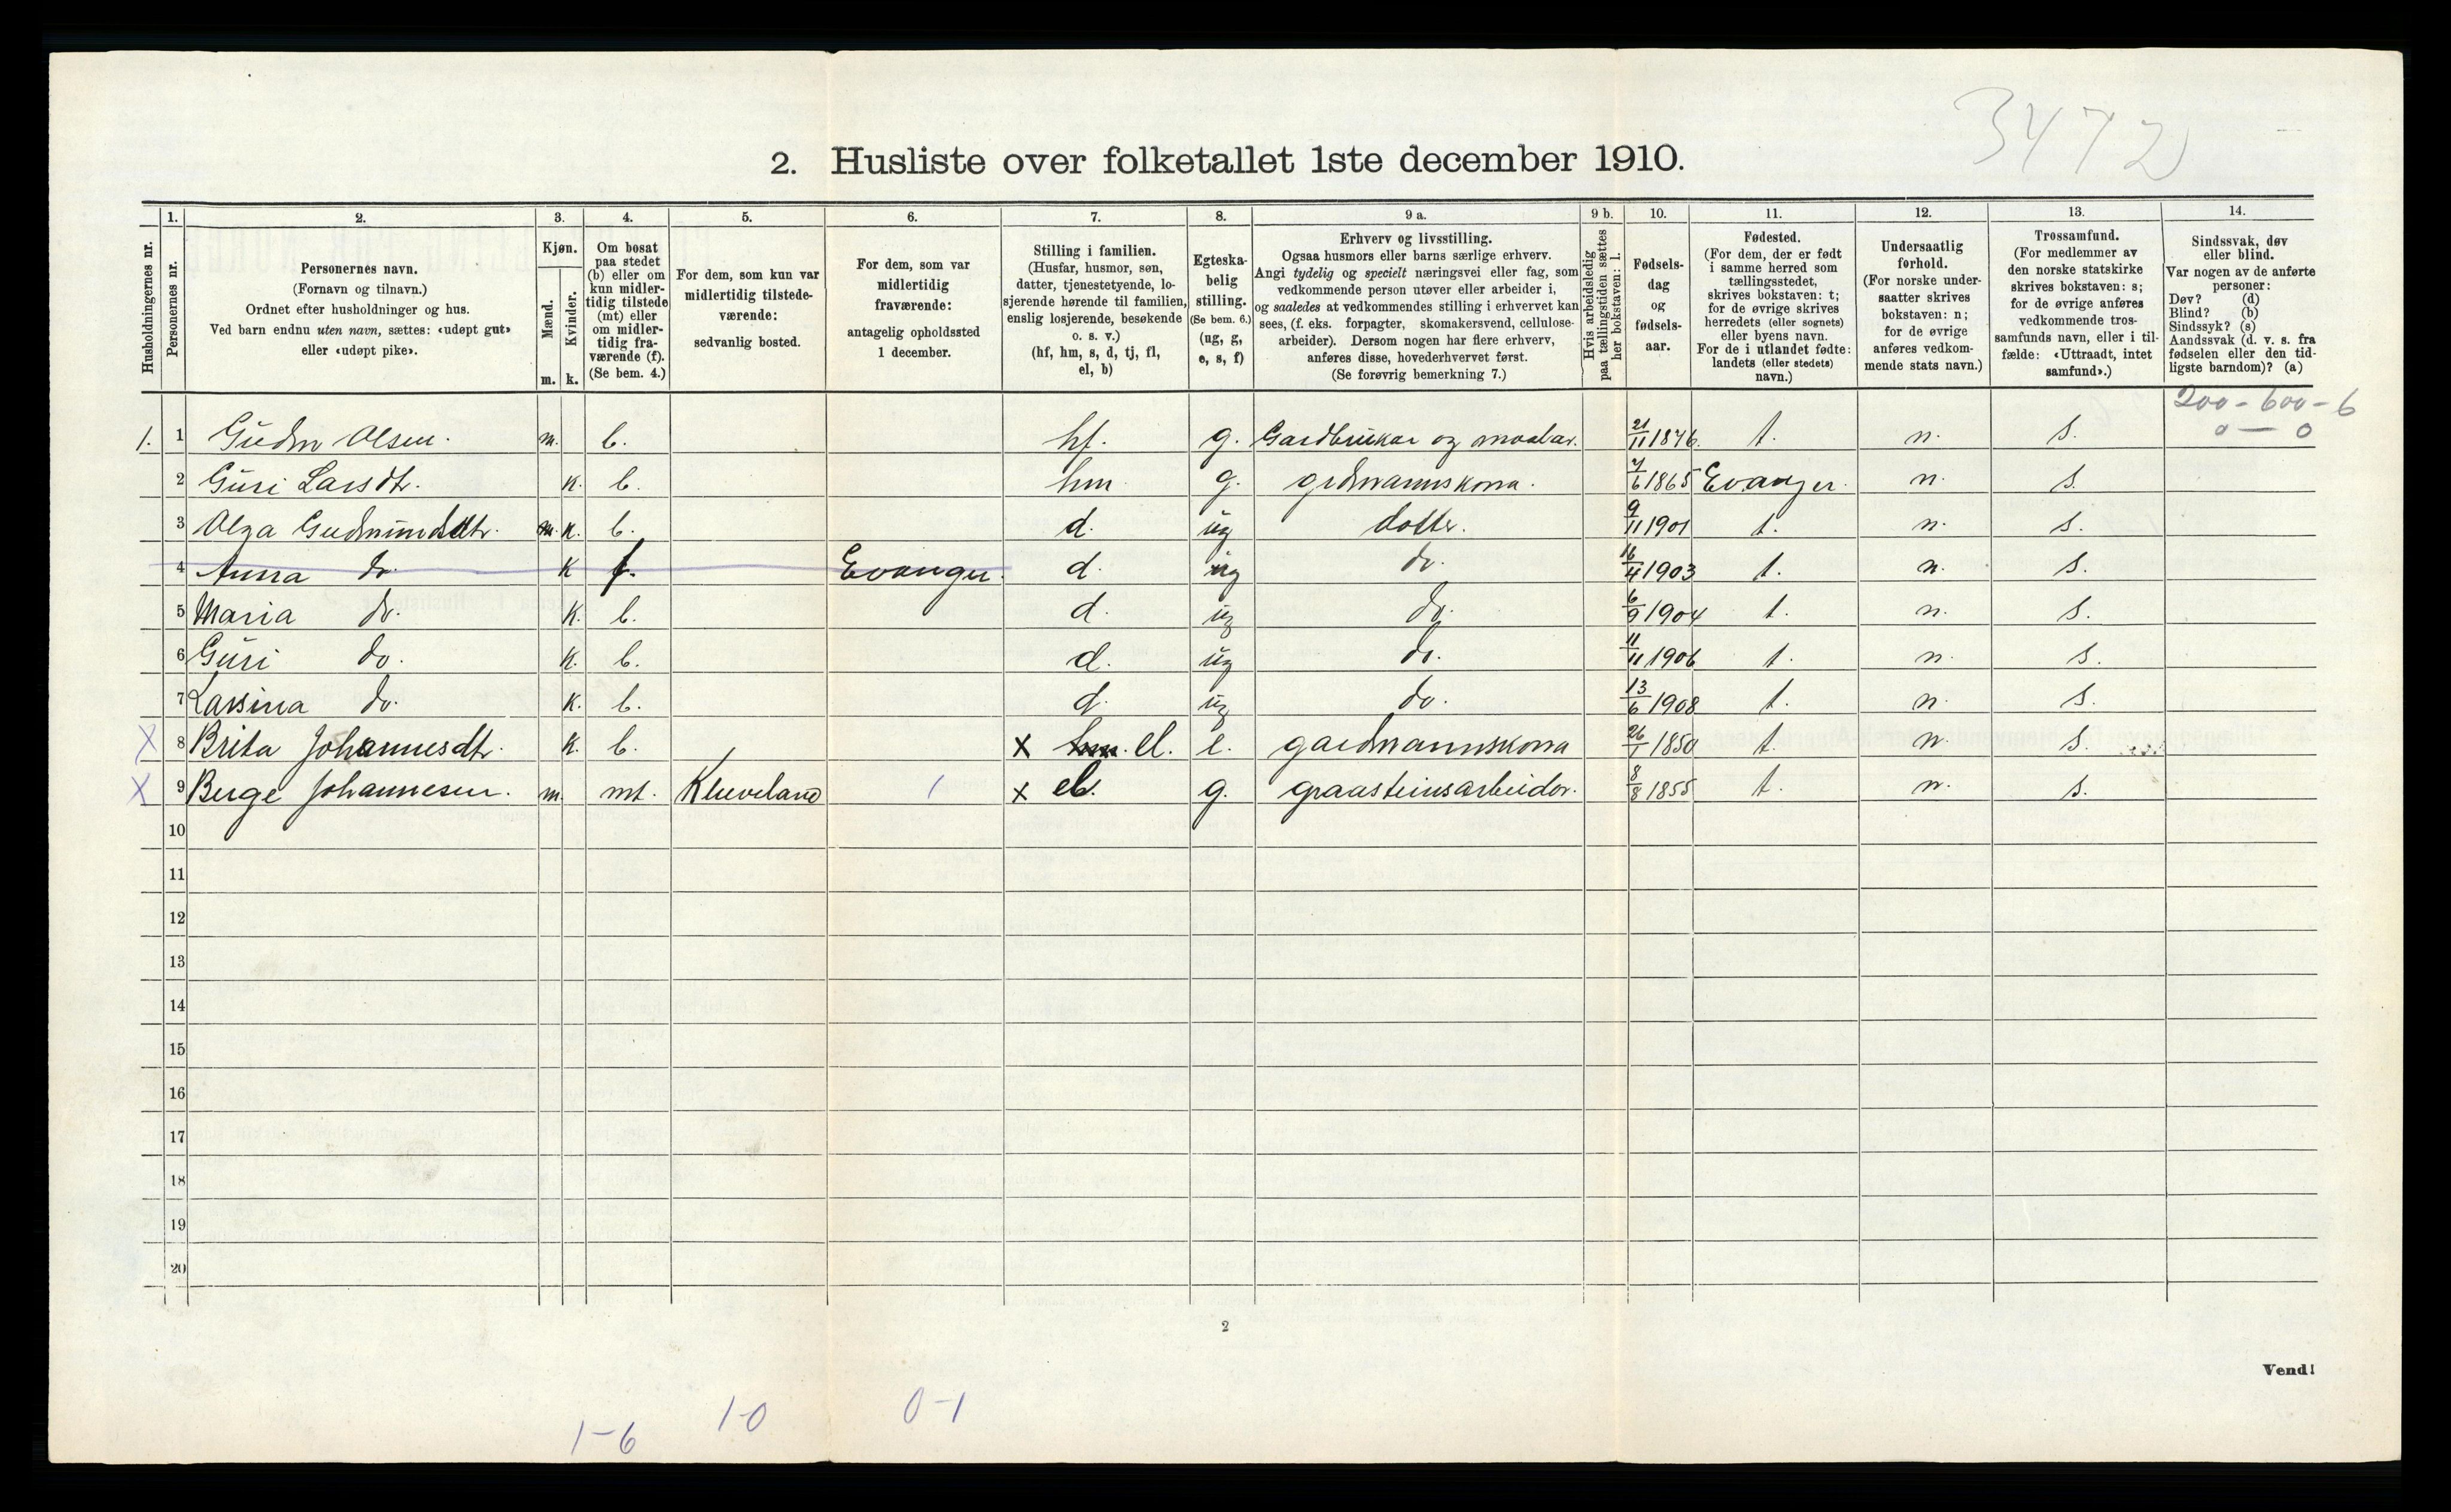 3472
2. Husliste over folketallet 1ste december 1910.
Husholdningernes nr.
1. Personernes nr.
2. Personernes navn. (Fornavn og tilnavn.) Ordnet efter husholdninger og hus. Ved barn endnu uten navn, sættes: «udøpt gut» eller «udøpt pike».
3. Kjøn. Mænd. m. Kvinder. k.
4. Om bosat paa stedet (b) eller om kun midler-tidig tilstede (mt) eller om midler-tidig fra-værende (f). (Se bem. 4.)
5. For dem, som kun var midlertidig tilstede-værende: sedvanlig bosted.
6. For dem, som var midlertidig fraværende: antagelig opholdssted 1 december.
7. Stilling i familien. (Husfar, husmor, søn, datter, tjenestetyende, lo-sjerende hørende til familien, enslig losjerende, besøkende o. s. v.) (hf, hm, s, d, tj, fl, el, b)
8. Egteska-belig stilling. (Se bem. 6.) (ug, g, e, s, f)
9 a. Erhverv og livsstilling. Ogsaa husmors eller barns særlige erhverv. Angi tydelig og specielt næringsvei eller fag, som vedkommende person utøver eller arbeider i, og saaledes at vedkommendes stilling i erhvervet kan sees, (f. eks. forpagter, skomakersvend, cellulose-arbeider). Dersom nogen har flere erhverv, anføres disse, hovederhvervet først. (Se forøvrig bemerkning 7.)
9 b. Hvis arbeidsledig paa tællingstiden sættes her bokstaven: l.
10. Fødsels-dag og fødsels-aar.
11. Fødested. (For dem, der er født i samme herred som tællingsstedet, skrives bokstaven: t; for de øvrige skrives herredets (eller sognets) eller byens navn. For de i utlandet fødte: landets (eller stedets) navn.)
12. Undersaatlig forhold. (For norske under-saatter skrives bokstaven: n; for de øvrige anføres vedkom-mende stats navn.)
13. Trossamfund. (For medlemmer av den norske statskirke skrives bokstaven: s; for de øvrige anføres vedkommende tros-samfunds navn, eller i til-fælde: «Uttraadt, intet samfund».)
14. Sindssvak, døv eller blind. Var nogen av de anførte personer: Døv? (d) Blind? (b) Sindssyk? (s) Aandssvak (d. v. s. fra fødselen eller den tid-ligste barndom)? (a)
200 - 600 - 6
0 — 0
1. 1 Gudm Olsen. m. b. hf. g. Gardbrukar og 21/11 1876. t. n. s.
2 Guri Larsdtr. k. b. hm g. grdmannskona. 7/6 1865 Evanger. n. s.
3 Olga Gudmundsdtr. m. k. b. d. ug dotter. 9/11 1901 t. n. s.
4 Anna do. K f. Evanger. d. ug do. 16/4 1903 t. n. s.
5 Maria do. K. b. d. ug do. 6/9 1904 t. n. s.
6 Guri do. K. b. d. ug do. 11/11 1906 t. n. s.
7 Larsina do. K. b. d. ug do. 13/6 1908 t. n. s.
X 8 Brita Johannesdtr. K. b. x hm. el. e. gardmannskona 26/1 1850 t. n. s.
X 9 Berge Johannesen. m. mt. Kleiveland / x eb. g. graasteinsarbeider. 8/8 1855 t. n. s.
10
11
12
13
14
15
16
17
18
19
20
2
Vend!
1-6 1-0 0-1